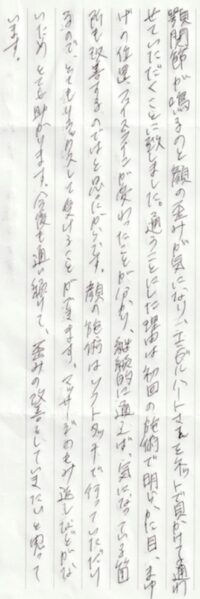 顎関節が鳴るのと顔の歪みが気になり、エデルハートさんをネットで見かけて通わ
せていただくことに致しました。通うことにした理由は初回の施術で明らかに目、まゆ
げの位置、フェイスラインが変わったことが分かり、継続的に通えば、気になっている箇
所も改善するのではと思ったからです。顔の施術はソフトタッチで行っていただけ
るので、とてもリラックスして受けることができます。マッサージのもみ返しなどがな
いためとても助かります。今後も通い続けて、歪みの改善をしていきたいと思って
います。